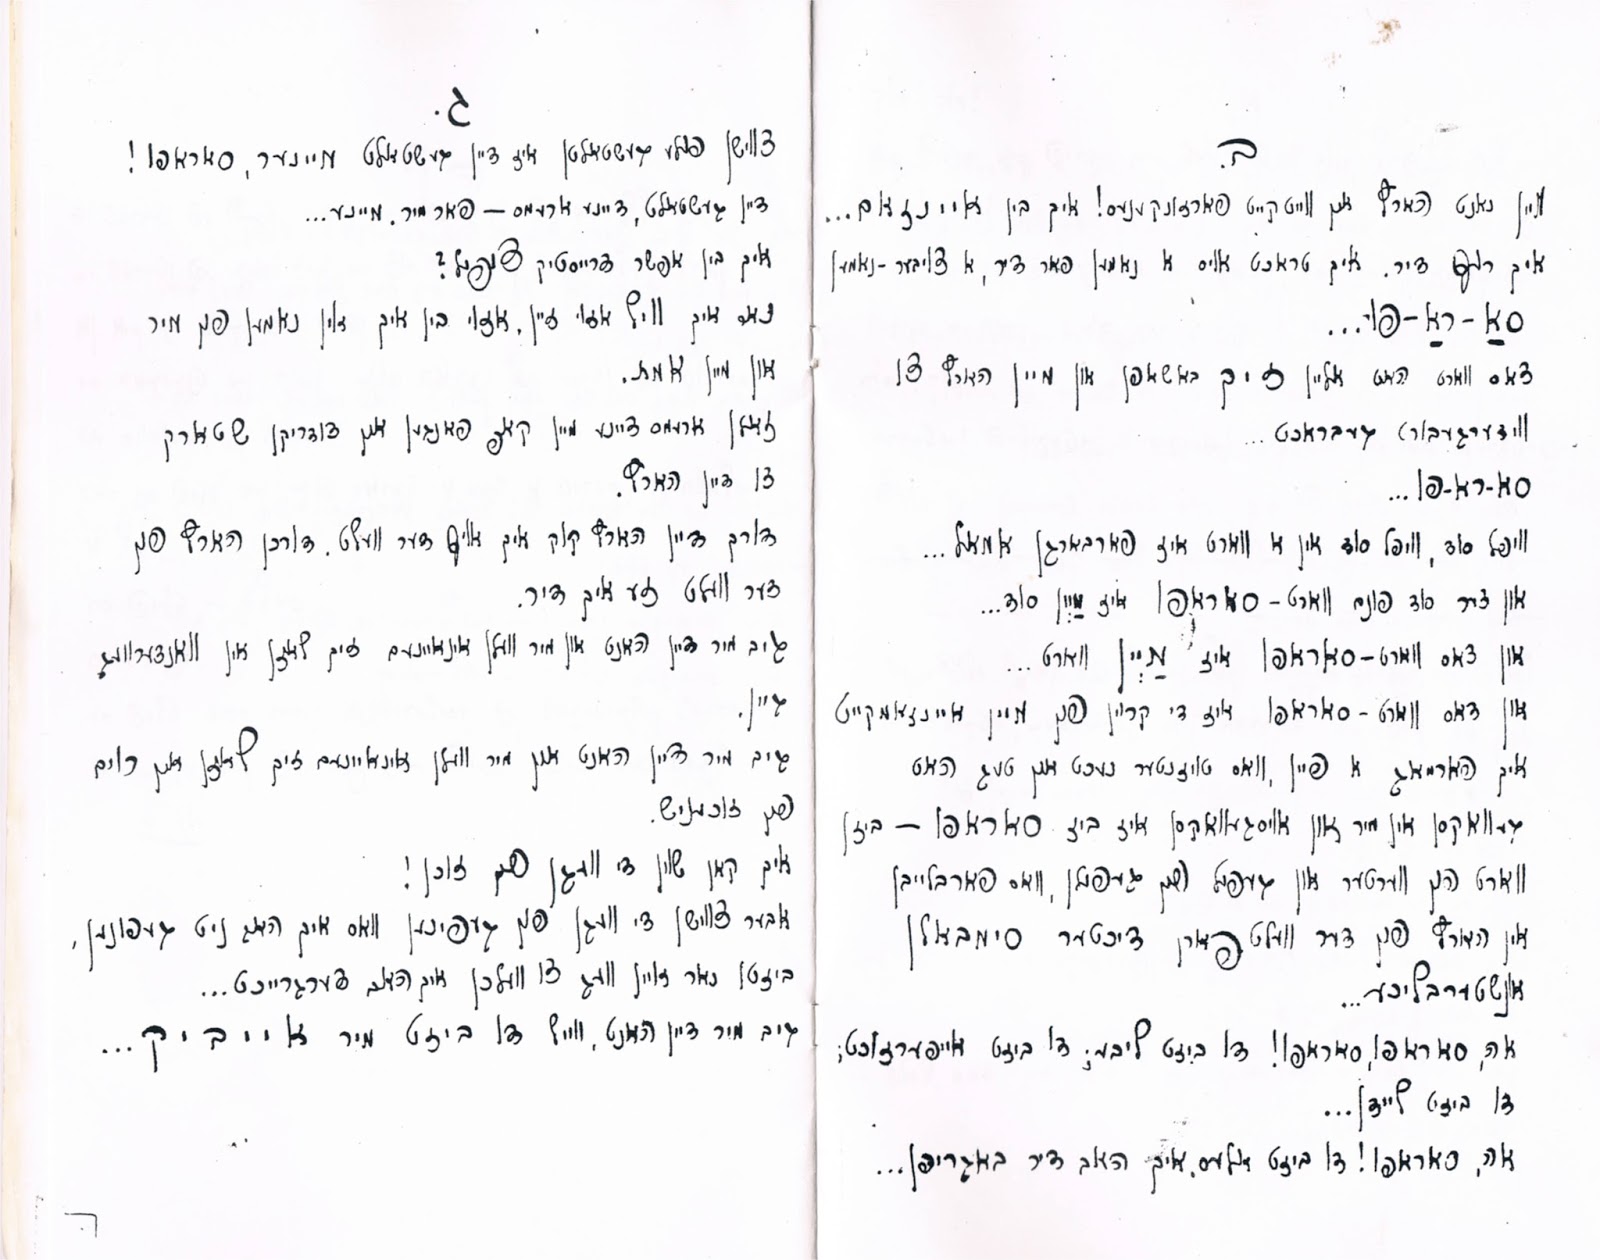 ב.
מיין נאנט הארץ און ווייטקייט פארזונקענעס! איך בין איינזאם...
איך רוף דיר. איך טראכט אויס א נאמען פאר דיר, א צליבער-נאמען
סאַ-ראַ-פו...
דאס ווארט האט אליין זיך באשאפן און מיין הארץ צו
ווידערגעבורט געבראכט...
סא-רא-פו...
וויפל סוד, וויפל סוד אין א ווארט איז פארבארגן אמאל...
און דער סוד פונם ווארט-סאראפו איז מיין סוד...
און דאס ווארט-סאראפו איז מיין ווארט...
און דאס ווארט-סאראפו איז די קרוין פון מיין איינזאמקייט
איך הארמאג א פיין, וואס טויזנטער נעכט און טעג האט
געוואקסן אין מיר און אויסגעוואקסן איז ביז סאראפו – ביזן
ווארט פון ווערטער און געפיל פון געפילן, וואס פארבלייבן
אין הארץ פון דער וועלט פארן דיכטער סימבאלן
אונשטערבליכע...
אה, סאראפו, סאראפו! דו ביזט ליבע; דו ביזט אייפערזוכט;
דו ביזט ליידן...
אה, סאראפו! דו ביזט אלעס, איך האב דיר באגריפן...
ג.
צווישן פילע געשטאלטן איז דיין געשטאלט מיינער, סאראפו!
דיין געשטאלט, דיינע ארעמס – פאר מיר, מיינע...
איך בין אפשר דרייסטיק צופיל?
נאר איך וויל אזוי זיין, אזוי בין איך אין נאמען פון מיר
און מיין אמת.
זאלן ארעמס דיינע מיין קאפ פאנגען און צודריקן שטארק
צו דיין הארץ.
דורך דיין הארץ קוק איך אויף דער וועלט. דורכן הארץ פון
דער וועלט זע איך דיר.
גיב מיר דיין האנט און מיר וועלן אינאיינעם זיך לאזן אין וואנדערוועג
גיין.
גיב מיר דיין האנט און מיר וועלן אינאיינעם זיך לאזן אין רוים
פון זוכעניש.
איך קאן שוין די וועגן פון זוכן!
אבער צווישן די וועגן פון געפינען וואס איך האב ניט געפונען,
ביזטו נאר איין וועג צו וועלכן איך האב דערגרייכט...
גיב מיר דיין האנט, ווייל דו ביזט מיר אייביק...
ד.